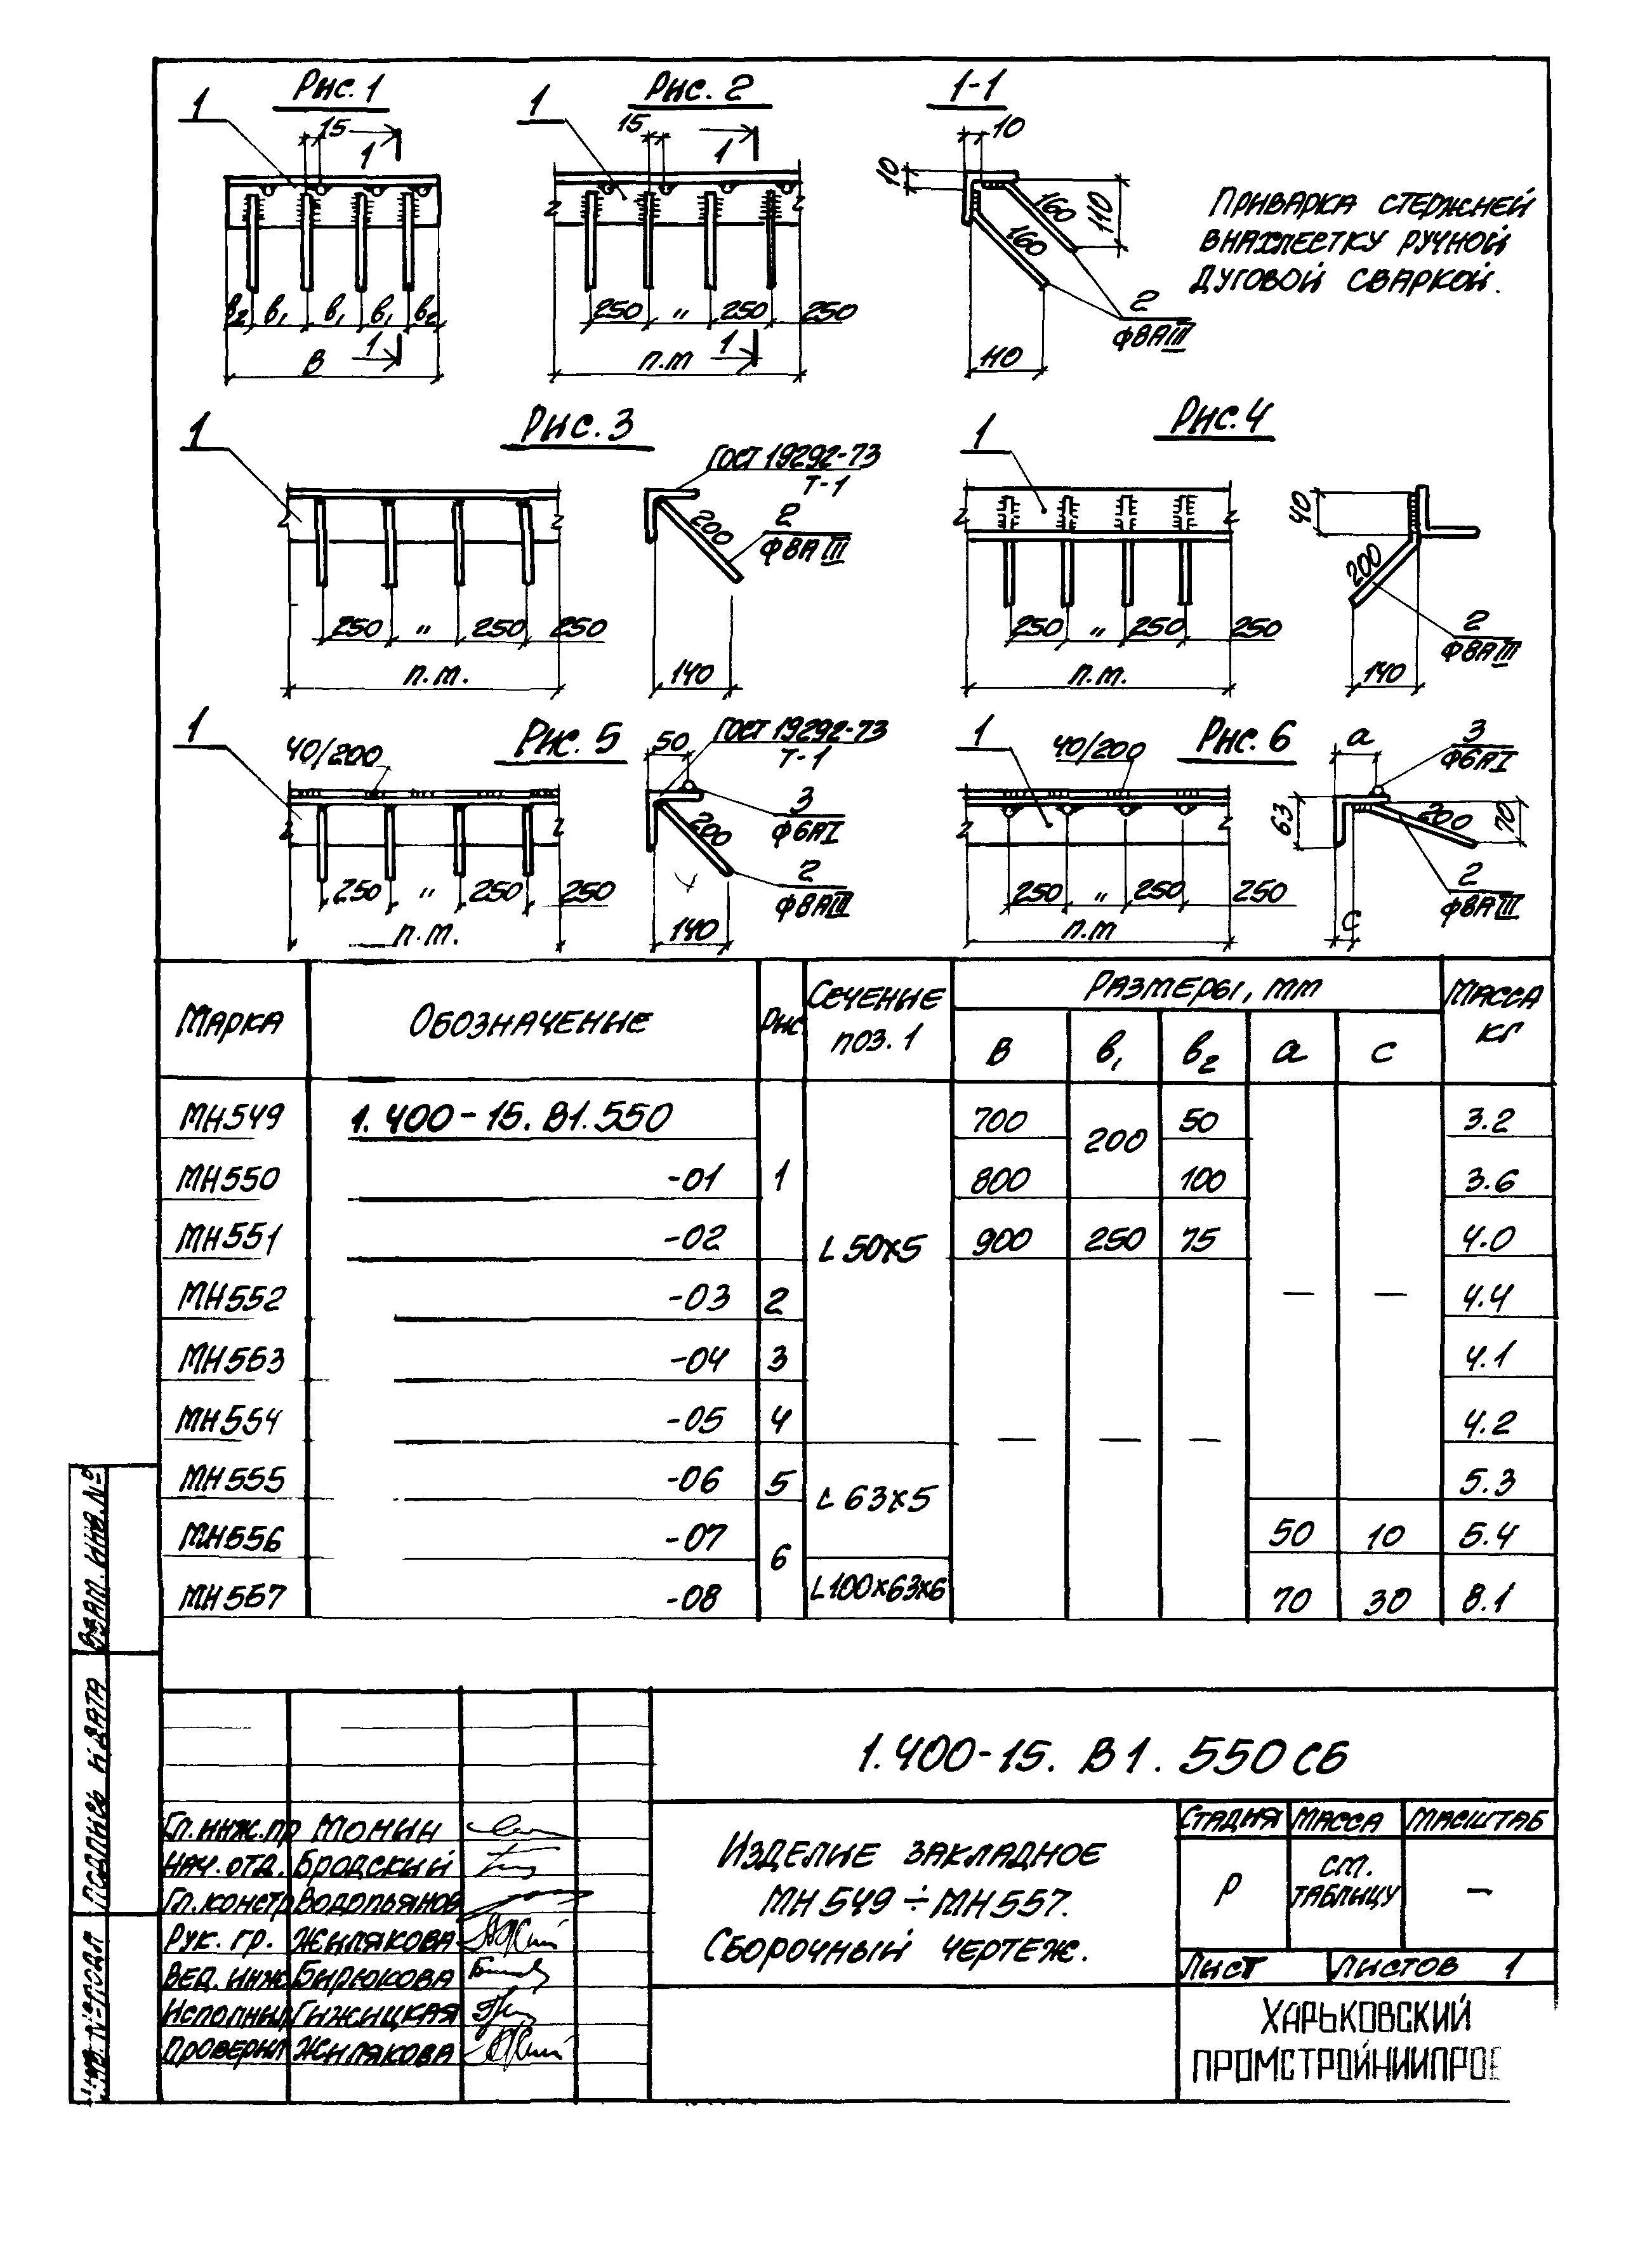 Рис. 1
1
15
1
в₂ в₁ в₁ в₁ в₂
1
В
Рис. 2
1
15
1
250 " 250 250
1
п.м
1-1
10
10
160
110
160
2
Ф8АIII
110
Приварка стержней
внахлестку ручной
дуговой сваркой.
Рис. 3
1
ГОСТ 19292-73
Т-1
2
Ф8АIII
200
250 " 250 250
п.м.
140
Рис. 4
1
40
200
2
Ф8АIII
250 " 250 250
п.м.
140
Рис. 5
1
40/200
50
ГОСТ 19292-73
Т-1
3
Ф6АI
200
2
Ф8АIII
250 " 250 250
п.м.
140
Рис. 6
1
40/200
а
3
Ф6АI
63
200
70
2
Ф8АIII
250 " 250 250
с
п.м
Марка Обозначение Рис. Сечение поз. 1 Размеры, мм Масса кг
В в₁ в₂ а с
МН549 1.400-15.В1.550 1 L 50х5 700 200 50 3.2
МН550 -01 800 100 3.6
МН551 -02 900 250 75 4.0
МН552 -03 2 — — 4.4
МН553 -04 3 4.1
МН554 -05 4 — — — 4.2
МН555 -06 5 L 63х5 5.3
МН556 -07 6 50 10 5.4
МН557 -08 L100х63х6 70 30 8.1
Взам. инв. №
Подпись и дата
Инв. № подл
1.400-15. В1. 550СБ
Гл. инж. пр Монин
Нач. отд. Бродский
Гл. констр Водопьянов
Рук. гр. Жилякова
Вед. инж Бирюкова
Исполнил Гижицкая
Проверил Жилякова
Изделие закладное
МН549÷МН557.
Сборочный чертеж.
Стадия Масса Масштаб
Р см. таблицу —
Лист Листов 1
Харьковский
ПРОМСТРОЙНИИПРОЕ